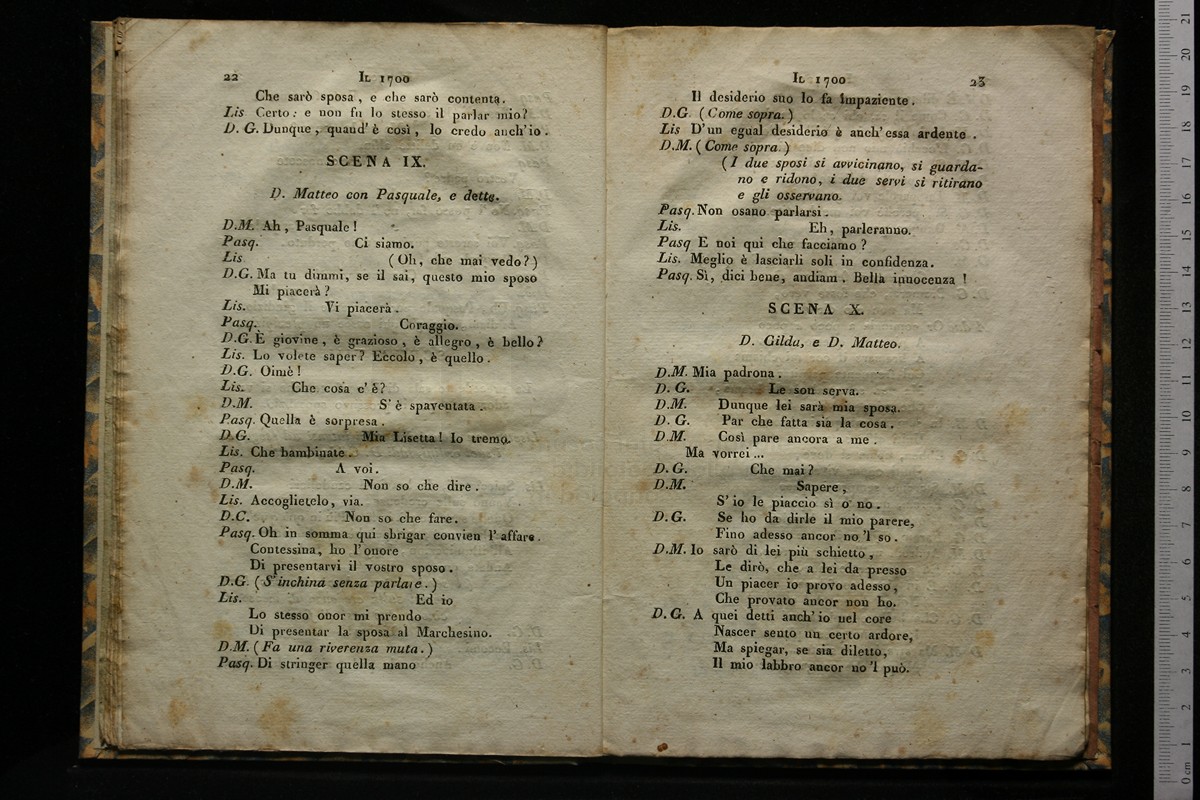 22
IL 1700
Che sarò sposa, e che sarò contenta.
Lis Certo: e non fu lo stesso il parlar mio?
D. G. Dunque, quand' è così, lo credo anch'io.
SCENA IX.
D. Matteo con Pasquale, e dette.
D.M. Ah, Pasquale!
Pasq. Ci siamo.
Lis (Oh, che mai vedo?)
D.G. Ma tu dimmi, se il sai, questo mio sposo
Mi piacerà?
Lis. Vi piacerà.
Pasq. Coraggio.
D.G. È giovine, è grazioso, è allegro, è bello?
Lis. Lo volete saper? Eccolo, è quello.
D.G. Oimè!
Lis. Che cosa c'è?
D.M. S'è spaventata.
Pasq. Quella è sorpresa.
D.G. Mia Lisetta! Io tremo.
Lis. Che bambinate.
Pasq. A voi.
D.M. Non so che dire.
Lis. Accoglietelo, via.
D.C. Non so che fare.
Pasq. Oh in somma qui sbrigar convien l'affare.
Contessina, ho l'onore
Di presentarvi il vostro sposo.
D.G. (S'inchina senza parlare.)
Lis. Ed io
Lo stesso onor mi prendo
Di presentar la sposa al Marchesino.
D.M. (Fa una riverenza muta.)
Pasq. Di stringer quella mano
IL 1700
23
Il desiderio suo lo fa impaziente.
D.G. (Come sopra.)
Lis D'un egual desiderio è anch'essa ardente.
D.M. (Come sopra.)
(I due sposi si avvicinano, si guarda-
no e ridono, i due servi si ritirano
e gli osservano.
Pasq. Non osano parlarsi.
Lis. Eh, parleranno.
Pasq E noi qui che facciamo?
Lis. Meglio è lasciarli soli in confidenza.
Pasq. Sì, dici bene, andiam. Bella innocenza!
SCENA X.
D. Gilda, e D. Matteo.
D.M. Mia padrona.
D. G. Le son serva.
D.M. Dunque lei sarà mia sposa.
D. G. Par che fatta sia la cosa.
D M. Così pare ancora a me.
Ma vorrei ...
D. G. Che mai?
D.M. Sapere,
S'io le piaccio sì o no.
D.G. Se ho da dirle il mio parere,
Fino adesso ancor no 'l so.
D.M. Io sarò di lei più schietto,
Le dirò, che a lei da presso
Un piacer io provo adesso,
Che provato ancor non ho.
D. G. A quei detti anch'io nel core
Nascer sento un certo ardore,
Ma spiegar, se sia diletto,
Il mio labbro ancor no 'l può.
21
20
19
18
17
16
15
14
13
12
11
10
9
8
7
6
5
4
3
2
1
0 cm